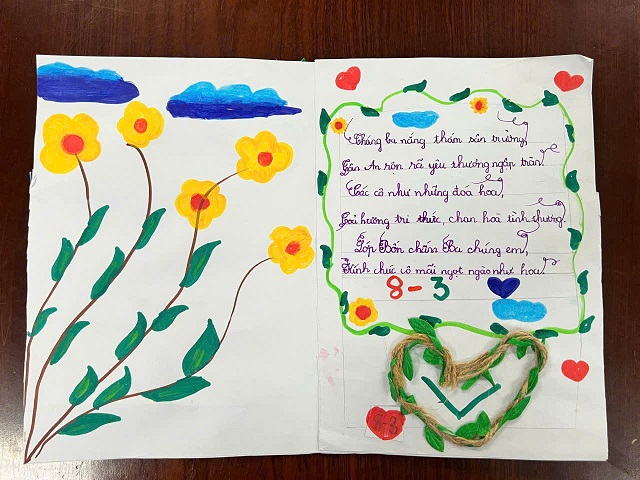 Tháng ba nắng thắm sân trường,
Tân An rộn rã yêu thương ngập tràn.
Các cô như những đoá hoa,
Toả hương tri thức, chan hoà tình thương.
Lớp Bốn chấm Ba chúng em,
Kính chúc cô mãi ngọt ngào như hoa.
8-3
8-3